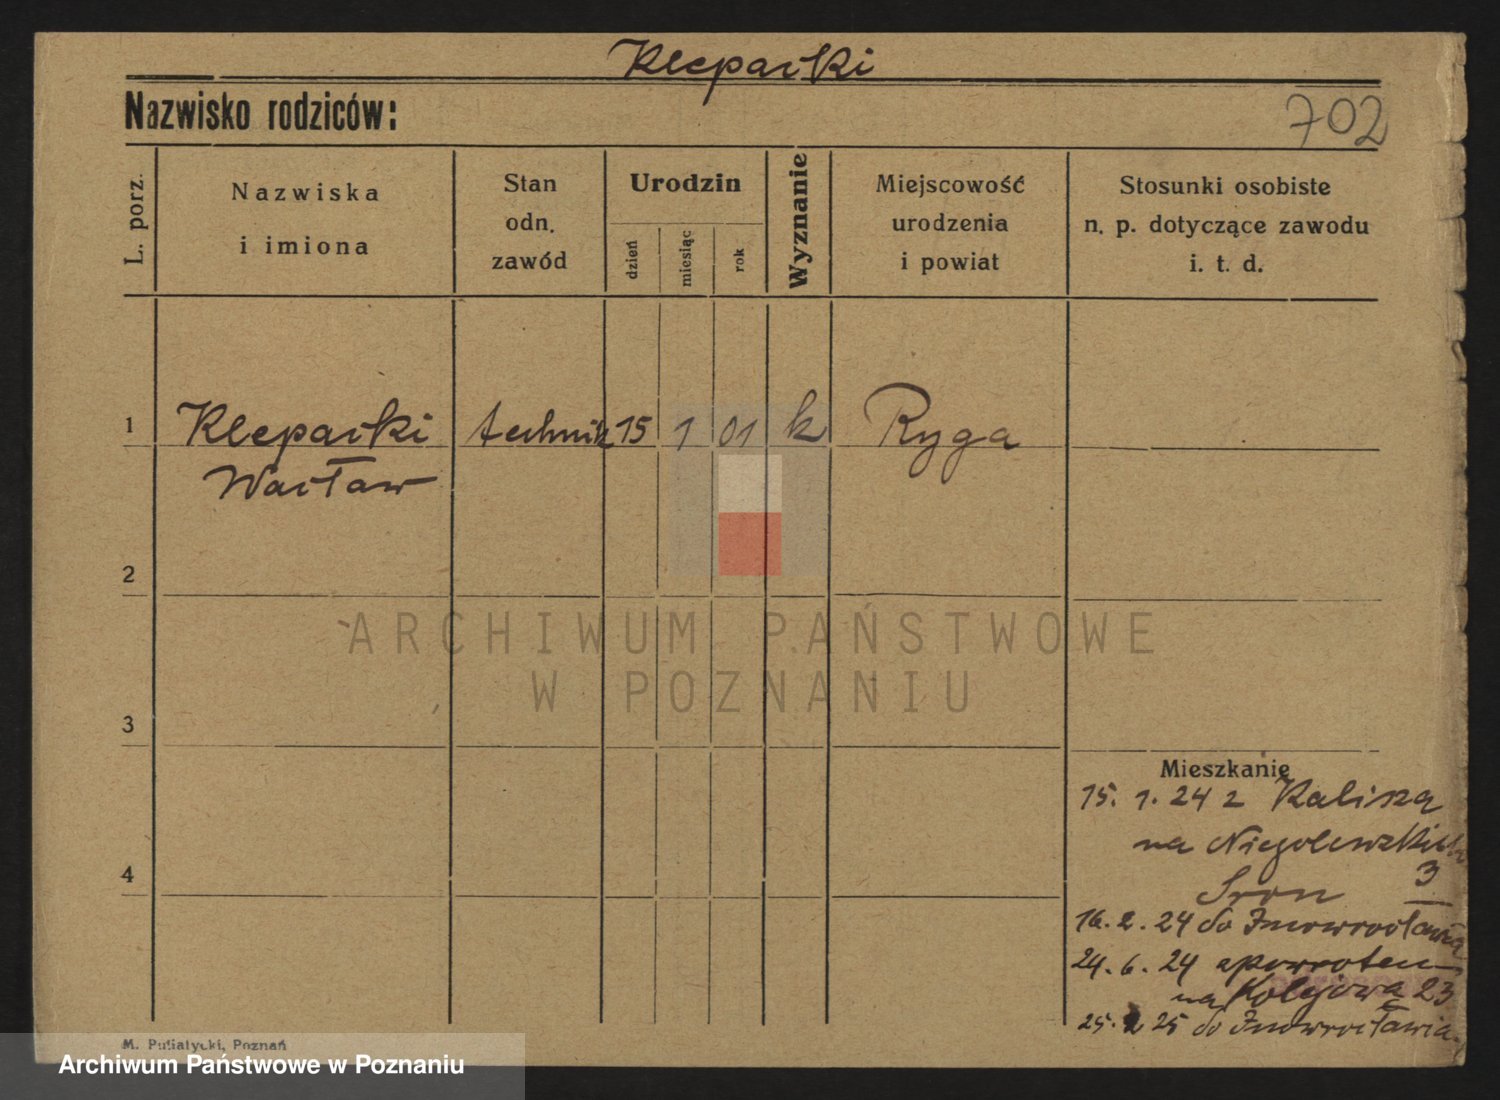 Kleparki
Nazwisko rodziców:
702
L. porz.
Nazwiska
i imiona
Stan
odn.
zawód
Urodzin
dzień
miesiąc
rok
Wyznanie
Miejscowość
urodzenia
i powiat
Stosunki osobiste
n. p. dotyczące zawodu
i. t. d.
1
Kleparki
Wacław
technik
15
1
01
k
Ryga
2
ARCHIWUM PAŃSTWOWE
W POZNANIU
3
Mieszkanie
15. 1. 24 z Kalisza
na Niegolewskich
3
16. 2. 24 do Inowrocławia
24. 6. 24 spowrotem
na Kolejowa 23
25. 2 25 do Inowrocławia
4
M. Putiatycki, Poznań
Archiwum Państwowe w Poznaniu